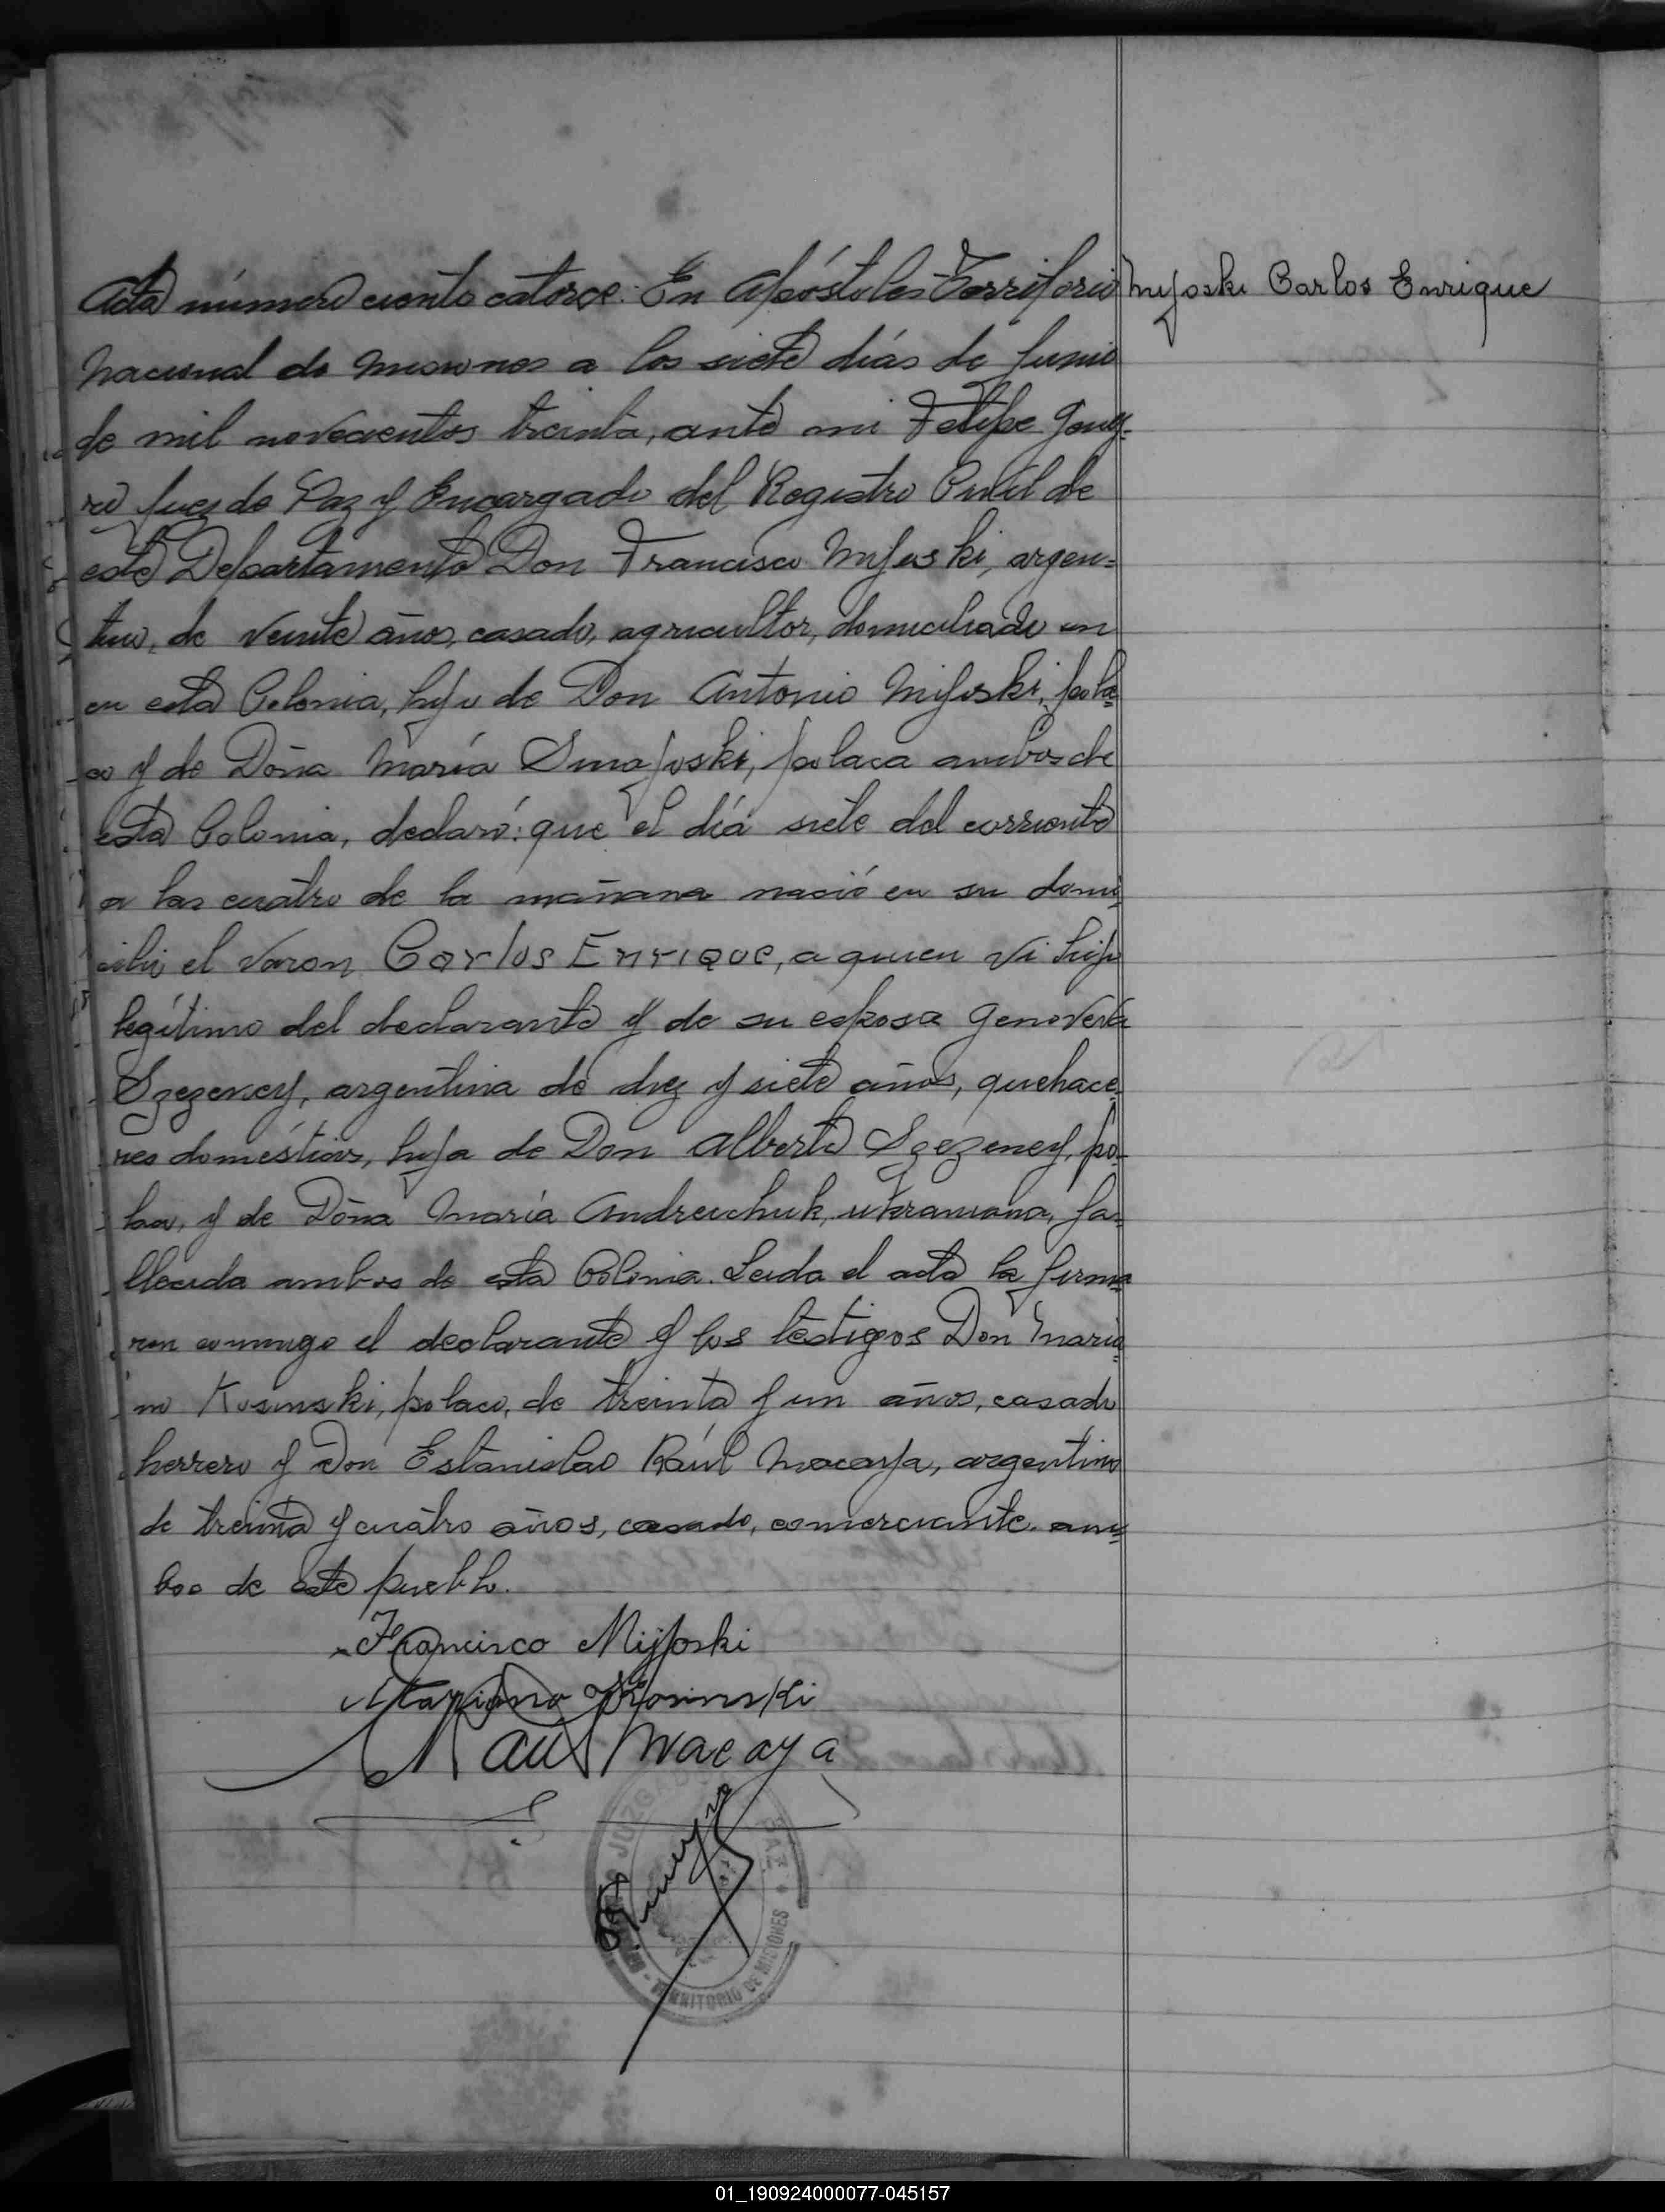 Acta número ciento catorce: En Apóstoles Territorio
Mijoski Carlos Enrique
Nacional de Misiones a los siete días de Junio
de mil novecientos treinta, ante mi Felipe
Juez de Paz y Encargado del Registro Civil de
este Departamento Don Francisco Mijoski, argen=
tino, de veinte años, casado, agricultor, domiciliado en
en esta Colonia, hijo de Don Antonio Mijoski, pola=
co y de Doña María Smajoski, polaca ambos de
esta Colonia, declaró: que el día siete del corriente
a las cuatro de la mañana nació en su domi=
cilio el varon Carlos Enrique, a quien vi hijo
legítimo del declarante y de su esposa Genoveva
Szezeney, argentina de diez y siete años, quehace=
res domésticos, hija de Don Alberto Szezeney, po=
laco, y de Doña María Andreuchuk, ukraniana, fa=
llecida ambos de esta Colonia. Leida el acta la firma
ron conmigo el declarante y los testigos Don Maria=
no Kosinski, polaco, de treinta y un años, casado
herrero y Don Estanislao Raúl Macaya, argentino
de treinta y cuatro años, casado, comerciante. am=
bos de este pueblo.
Francisco Mijoski
Mariano Kosinski
Raul Macaya
JUZGADO PAZ
TERRITORIO DE MISIONES
01_190924000077-045157